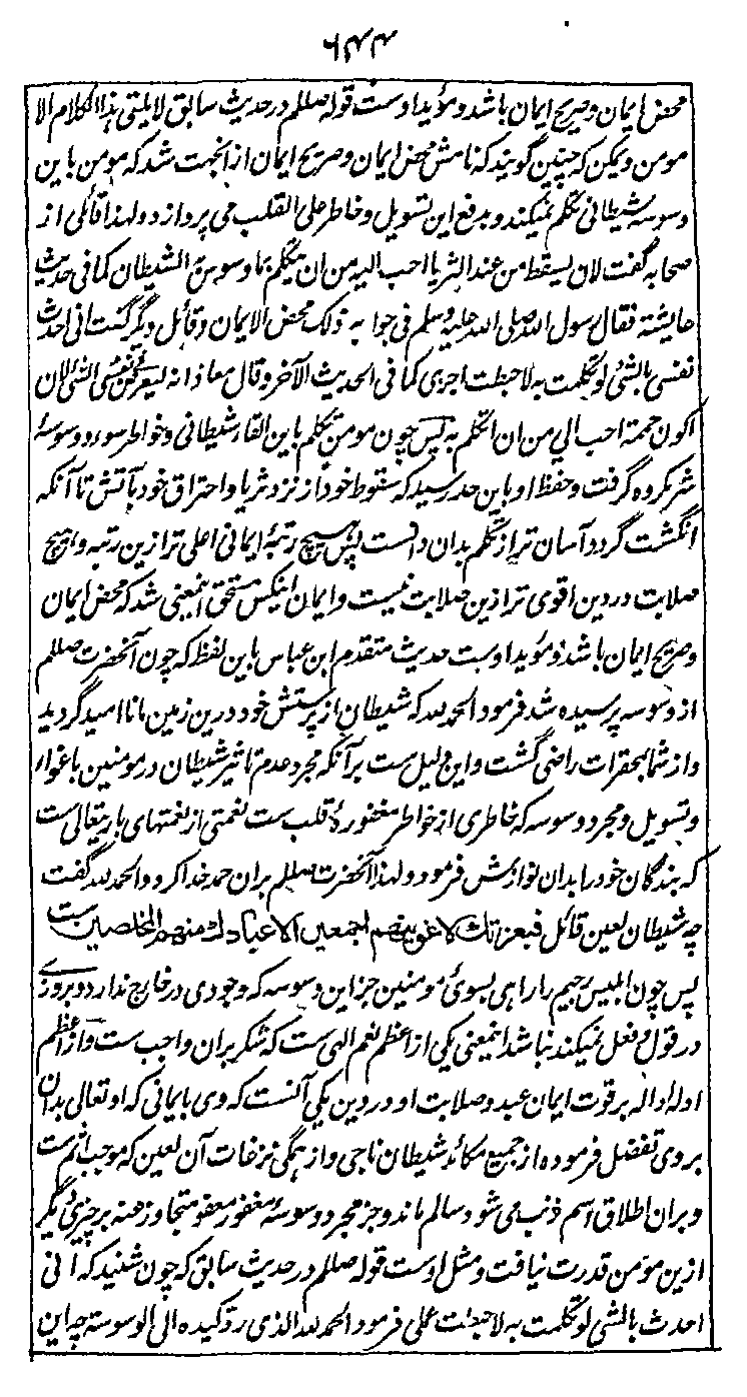 ۶۴۴
محض ایمان و صریح ایمان باشد و مؤید اوست قوله صللم در حدیث سابق لا یلقی هذا الکلام الا
مومن و یمکن که چنین گویند که نامش محض ایمان و صریح ایمان از انجهت شد که مومن باین
وسوسه شیطانی تکلم نمیکند و بدفع این تسویل و خاطر علی القلب می پردازد و لهذا قائلی از
صحابه گفت لان یسقط من عند الثریا احب الیه من ان یتکلم بما وسوس به الشیطان کما فی حدیث
عایشة فقال رسول الله صلی الله علیه وسلم فی جوابه ذلک محض الایمان و قائل دیگر گفت انی احدث
نفسی بالشئ لو تکلمت به لاحبطت اجری کما فی الحدیث الآخر و قال معاذ انه لیعرض فی نفسی الشئ لان
اکون حممة احب الی من ان اتکلم به پس چون مومن بتکلم باین القاء شیطانی و خواطر سوء و وسوسۀ
شر نکرده گرفت و حفظ او باین حد رسید که سقوط خود از نزد ثریا و احتراق خود بآتش تا آنکه
انگشت گردد آسان تر از تکلم بدان دانست پس هیچ رتبۀ ایمانی اعلی تر ازین رتبه و هیچ
صلابت در دین اقوی تر ازین صلابت نیست و ایمان اینکس مستحق اینمعنی شد که محض ایمان
و صریح ایمان باشد و مؤید اوست حدیث متقدم ابن عباس باین لفظ که چون آنحضرت صللم
از وسوسه پرسیده شد فرمود الحمد لله که شیطان از پرستش خود درین زمین ما ناامید گردید
و از شما بمحقرات راضی گشت و این دلیل ست بر آنکه مجرد عدم تاثیر شیطان در مومنین باغواء
و تسویل و مجرد وسوسه که خاطری از خواطر مغفورۀ قلب ست نعمتی از نعمتهای باریتعالی ست
که بندگان خود را بدان نوازش فرمود و لهذا آنحضرت صللم بران حمد خدا کرد و الحمد لله گفت
چه شیطان لعین قائل فبعزتك لاغوینهم اجمعین الا عبادك منهم المخلصین ست
پس چون ابلیس رجیم را راهی بسوئ مومنین جز این وسوسه که وجودی در خارج ندارد و بروزے
در قول و فعل نمیکند نباشد اینمعنی یکی از اعظم نعم الهی ست که شکر بران واجب ست و از اعظم
ادله داله بر قوت ایمان عبد و صلابت او در دین یکی آنست که وی بایمانی که او تعالی بدان
بروی تفضل فرموده از جمیع مکائد شیطان ناجی و از همگی نزغات آن لعین که موجب اثم ست
و بران اطلاق اسم ذنب می شود سالم ماند و جز مجرد وسوسۀ مغفور معفو متجاوز عنه بر چیزی دیگر
ازین مؤمن قدرت نیافت و مثل اوست قوله صللم در حدیث سابق که چون شنید که انی
احدث بالشی لو تکلمت به لاحبطت عملی فرمود الحمد لله الذی رد کیده الی الوسوسة چه این